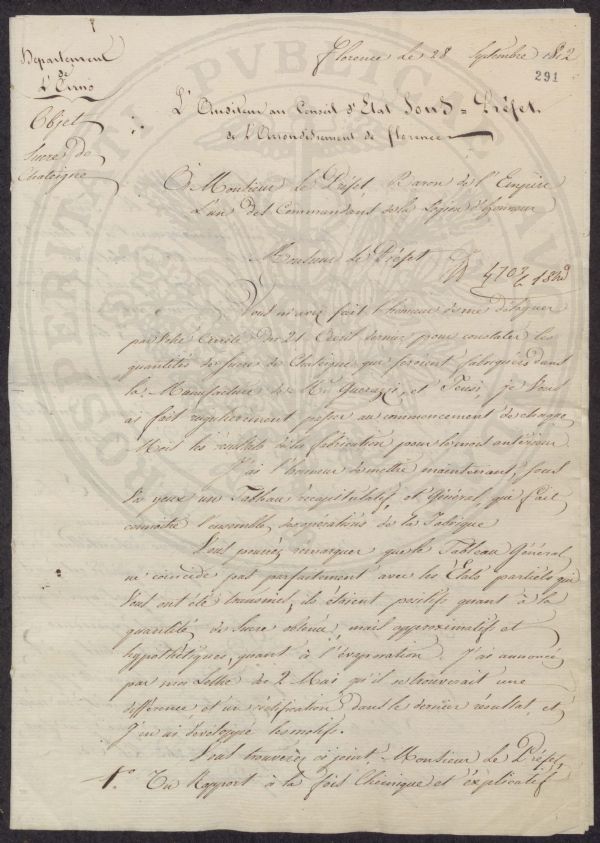 Departement
de
L'Arno
Objet
Sucre de
Chataigne
Florence le 28 Septembre 1812
291
L'Auditeur au Conseil d'Etat Sous=Préfet.
de L'Arrondissement de florence
A Monsieur le Préfet, Baron de l'Empire
L'un des Commandans de la Légion d'honneur
Monsieur le Préfet
Vous m'avez fait l'honneur de me déléguer
par votre Arrêté du 21 Avril dernier pour constater les
quantités de Sucre de Chataigne qui seroient fabriquées dans
la Manufacture de Mrs Guerazzi, et Tensi, je Vous
ai fait regulierement passer au commencement de chaque
Mois les résultats de la fabrication pour le mois antérieur
J'ai l'honneur de mettre maintenant, sous
Vos yeux un Tableau récapitulatif, et Général, qui fait
connaitre l'ensemble des opérations de la Fabrique
Vous pourrez remarquer que le Tableau Général
ne coincide pas parfaitement avec les Etats partiels qui
Vous ont été transmis; ils étaient positifs quant à la
quantité de Sucre obtenue, mais approximatifs et
hypothétiques, quant à l'évaporation. J'ai annoncé
par mon Lettre de 2 Mai qu'il se trouverait une
différence et une rectification dans le dernier résultat, et
J'en ai développé les motifs.
Vous trouverez ci joint, Monsieur le Préfet,
1.° Un Rapport à la fois Chimique et explicatif